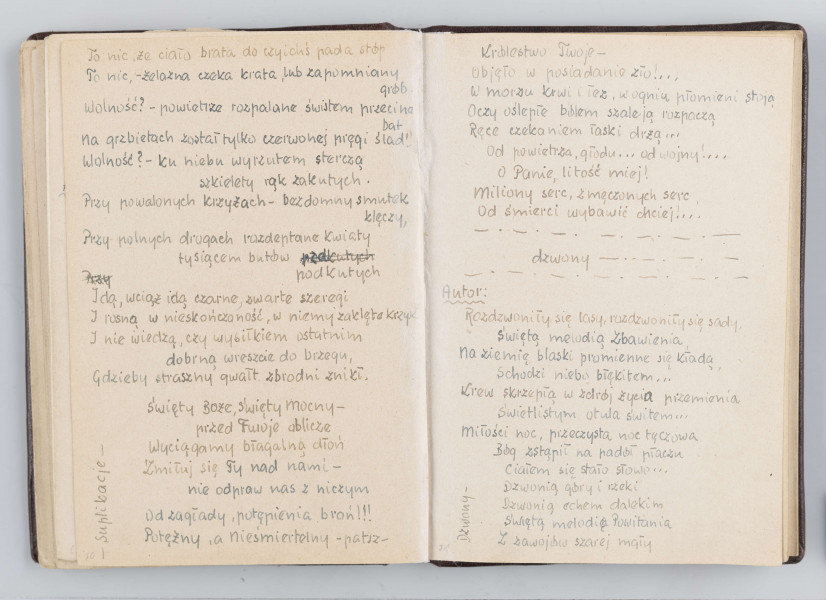 To nic, że ciało brata do czyichś pada stóp
To nic, – żelazna czeka krata, lub zapomniany
grób.
Wolność? – powietrze rozpalane świstem przecina
bat
na grzbietach został tylko czerwonej pręgi ślad!
Wolność? – ku niebu wyrzutem sterczą
szkielety rąk zakutych.
Przy powalonych krzyżach – bezdomny smutek
klęczy,
Przy polnych drogach rozdeptane kwiaty
tysiącem butów podkutych
Przy podkutych
Idą, wciąż idą czarne, zwarte szeregi
I rosną w nieskończoność, w niemy zaklęte krzyk
I nie wiedzą, czy wysiłkiem ostatnim
dobrną wreszcie do brzegu,
Gdzieby straszny gwałt zbrodni znikł.
Święty Boże, Święty Mocny –
przed Twoje oblicze
Wyciągamy błagalną dłoń
Zmiłuj się Ty nad nami –
nie odpraw nas z niczym
Od zagłady, potępienia broń!!!
Potężny, a Nieśmiertelny – patrz –
– Suplikacje –
Królestwo Twoje –
Objęło w posiadanie zło!...
W morzu krwi i łez, w ogniu, płomieni stoją
Oczy oślepłe bólem szaleją rozpaczą
Ręce czekaniem łaski drżą...
Od powietrza, głodu... od wojny!...
O Panie, litość miej!
Miliony serc, zmęczonych serc,
Od śmierci wybawić chciej!...
dzwony
Autor:
Rozdzwoniły się lasy, rozdzwoniły się sady,
Świętą melodią Zbawienia,
Na ziemię blaski promienne się kładą,
Schodzi niebo błękitem...
Krew skrzepłą w zdrój życia przemienia
Świetlistym otula świtem...
Miłości noc, przeczysta noc tęczowa
Bóg zstąpił na padół płaczu
Ciałem się stało słowo...
Dzwonią góry i rzeki
Dzwonią echem dalekim
Świętą melodię Powitania
Z zawojów szarej mgły
Dzwony –